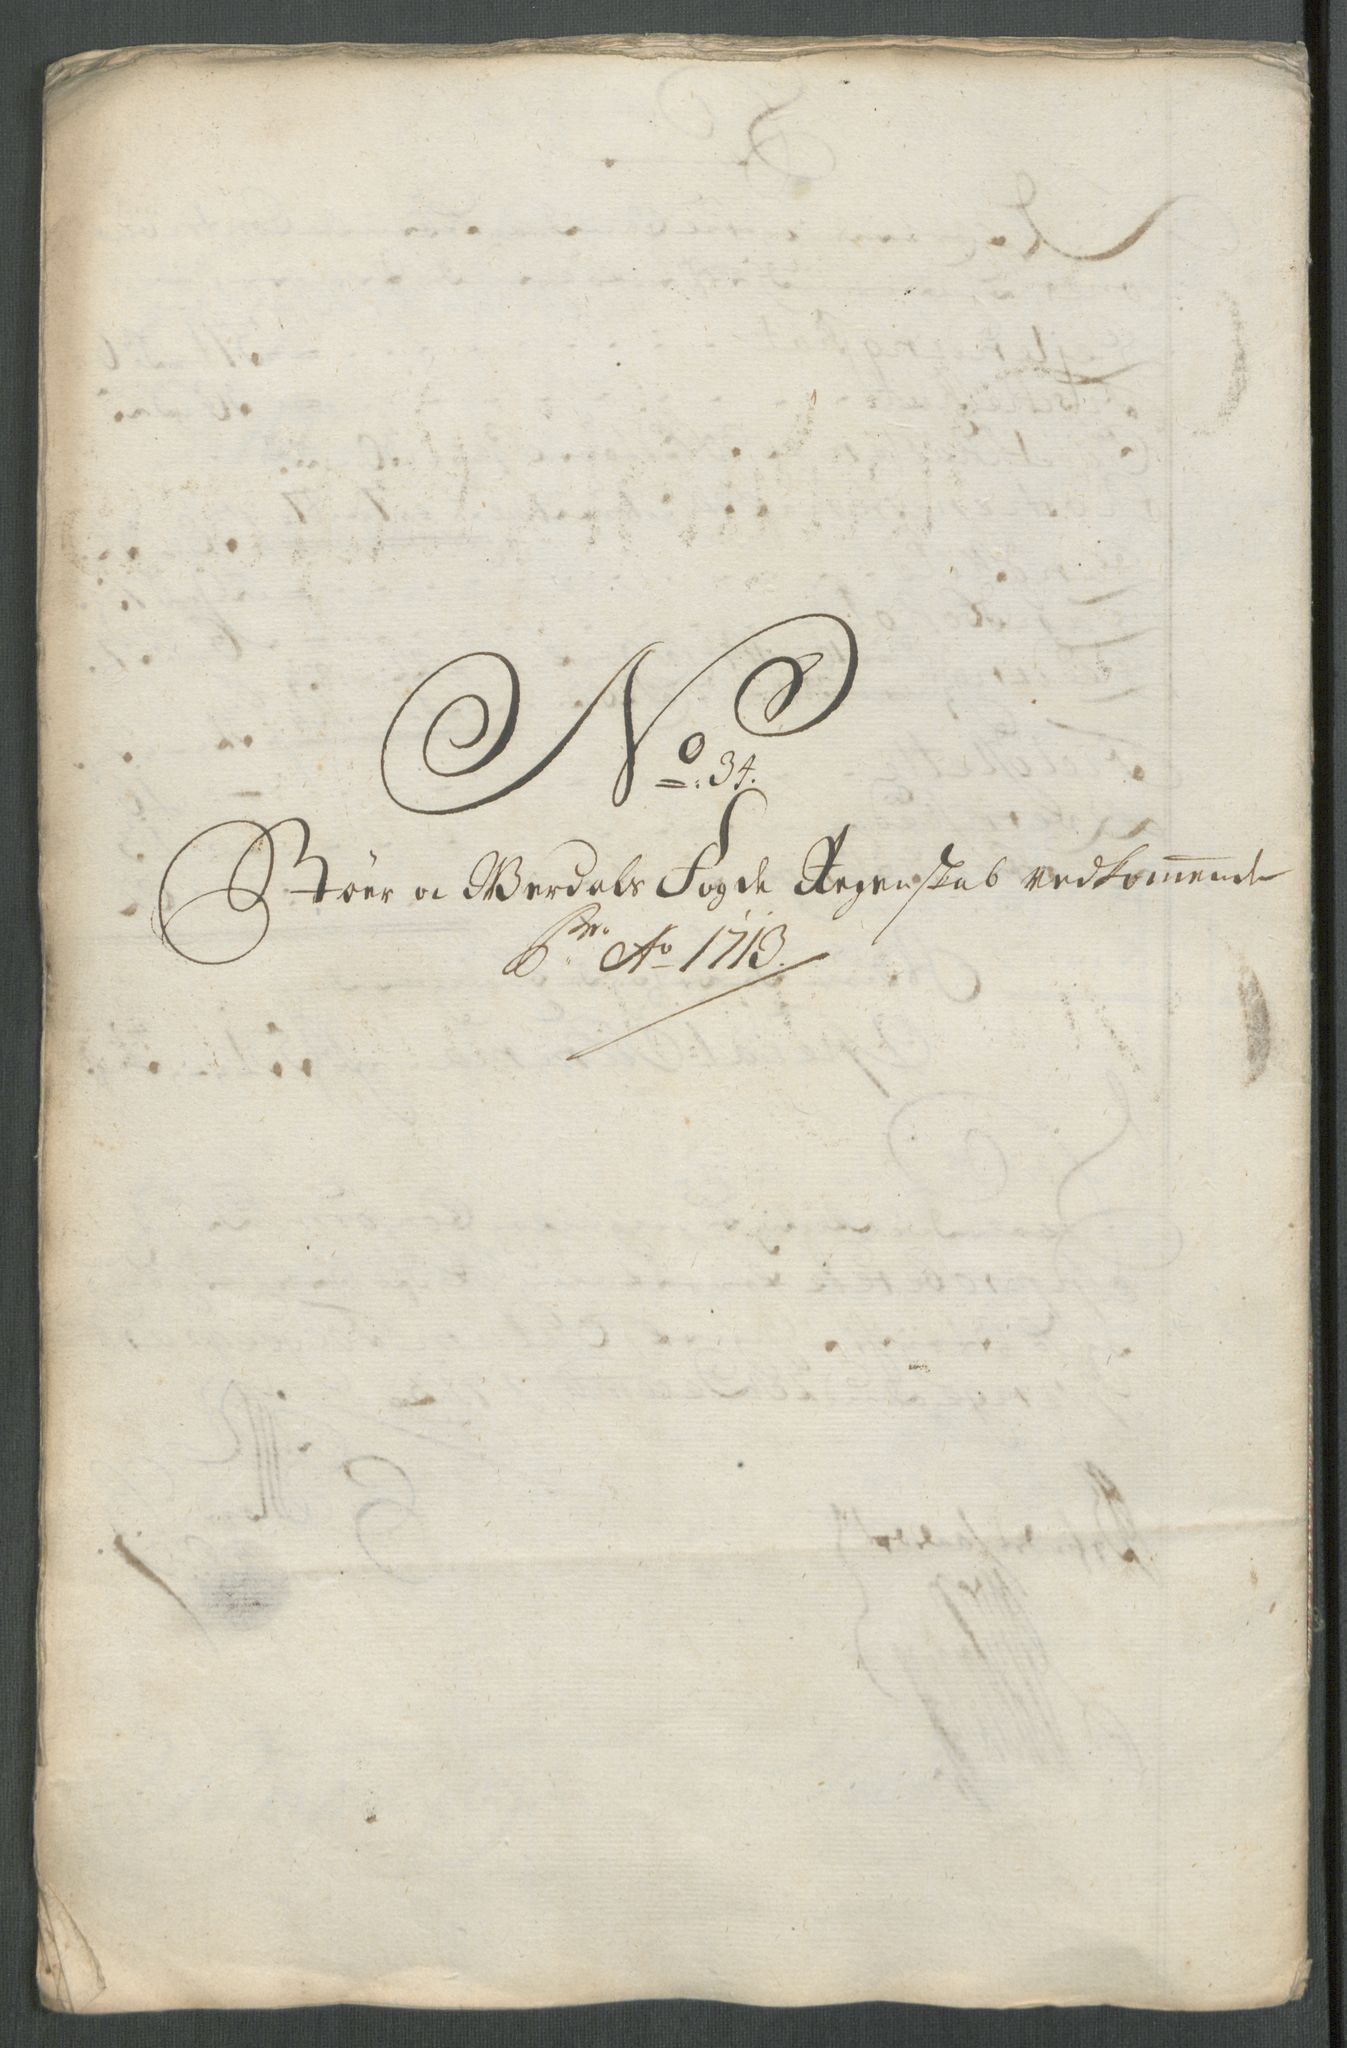 No. 34.
Støer oc Werdals Fogde Regenskab vedkommende
pro Ao 1713.